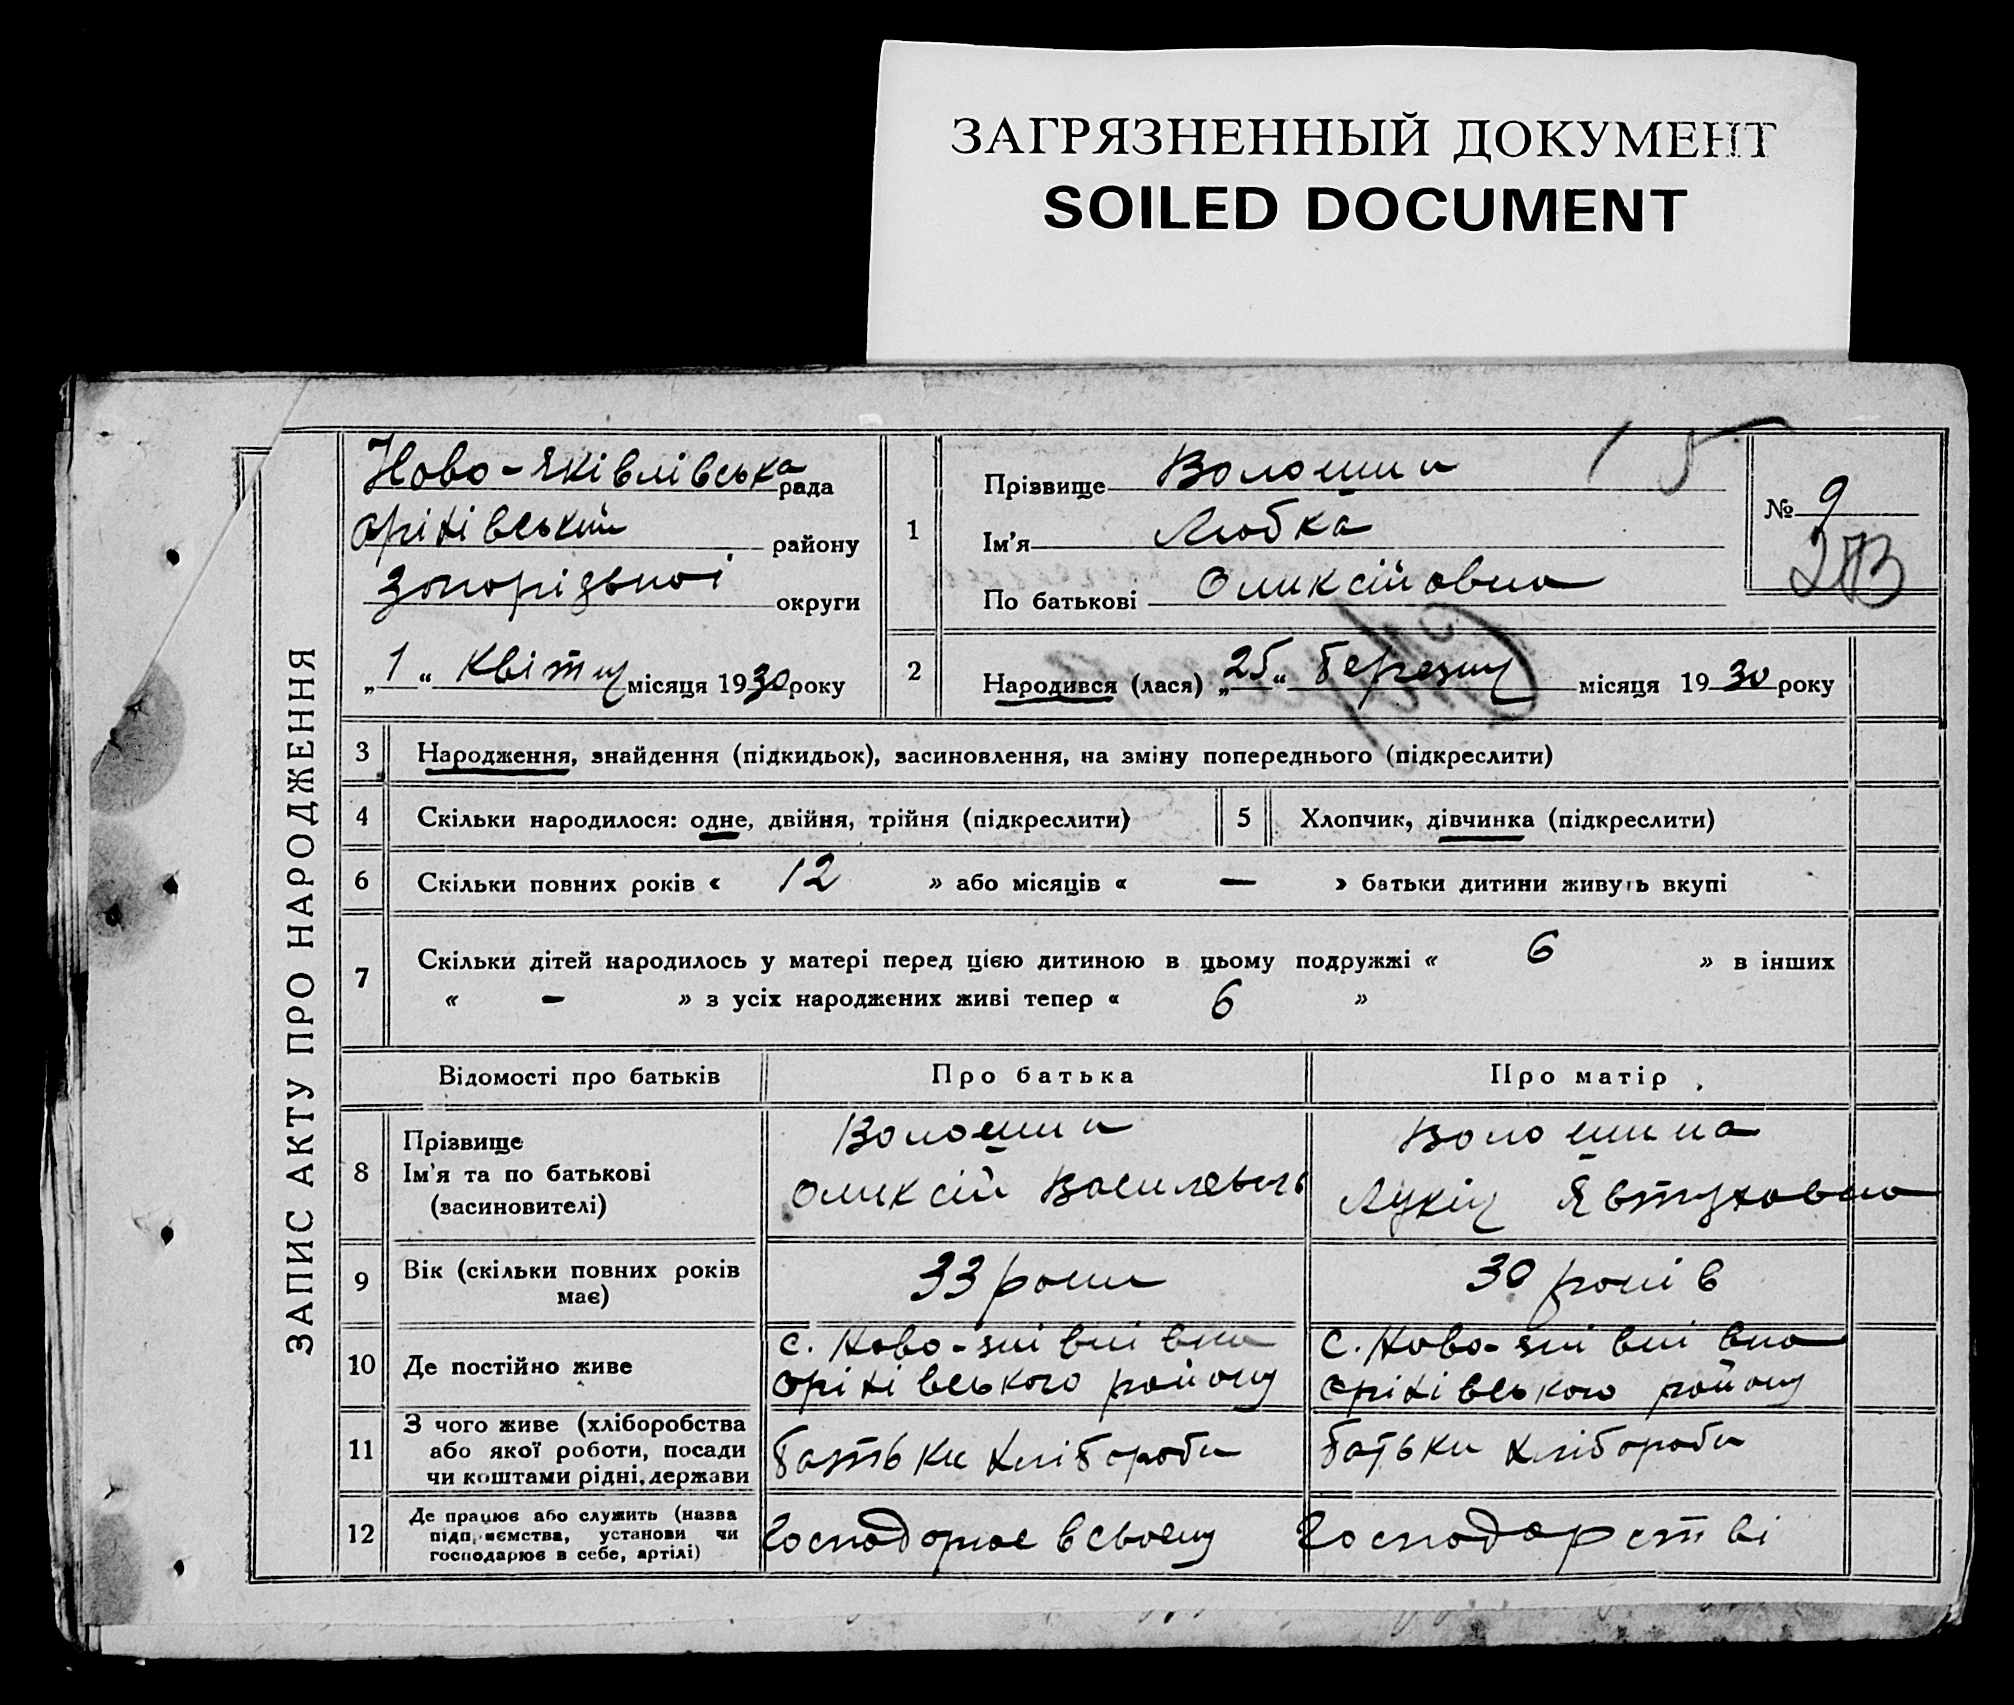 ЗАГРЯЗНЕННЫЙ ДОКУМЕНТ
SOILED DOCUMENT
ЗАПИС АКТУ ПРО НАРОДЖЕННЯ
Ново-Яківлівська рада
Оріхівський району
Запорізької округи
„1“ Квітня місяця 1930 року
1
Прізвище Волошин
Ім'я Любка
По батькові Оликсійовна
15
№ 9
2
Народився (лася) „25“ березня місяця 1930 року
3 Народження, знайдення (підкидьок), засиновлення, на зміну попереднього (підкреслити)
4 Скільки народилося: одне, двійня, трійня (підкреслити) 5 Хлопчик, дівчинка (підкреслити)
6 Скільки повних років « 12 » або місяців « — » батьки дитини живуть вкупі
7 Скільки дітей народилось у матері перед цією дитиною в цьому подружжі « 6 » в інших
« — » з усіх народжених живі тепер « 6 »
Відомості про батьків Про батька Про матір
8 Прізвище
Ім'я та по батькові
(засиновителі)
Волошин
Оликсій Василевичь
Волошина
Лукія Явтуховна
9 Вік (скільки повних років
має)
33 роки
30 років
10 Де постійно живе
с. Ново-Яківлівка
Оріхівського району
с. Ново-Яківлівка
Оріхівського району
11 З чого живе (хліборобства
або якої роботи, посади
чи коштами рідні, держави
батьки хлібороби
батьки хлібороби
12 Де працює або служить (назва
підприємства, установи чи
господарює в себе, артілі)
Господарює в своєму Господарстві